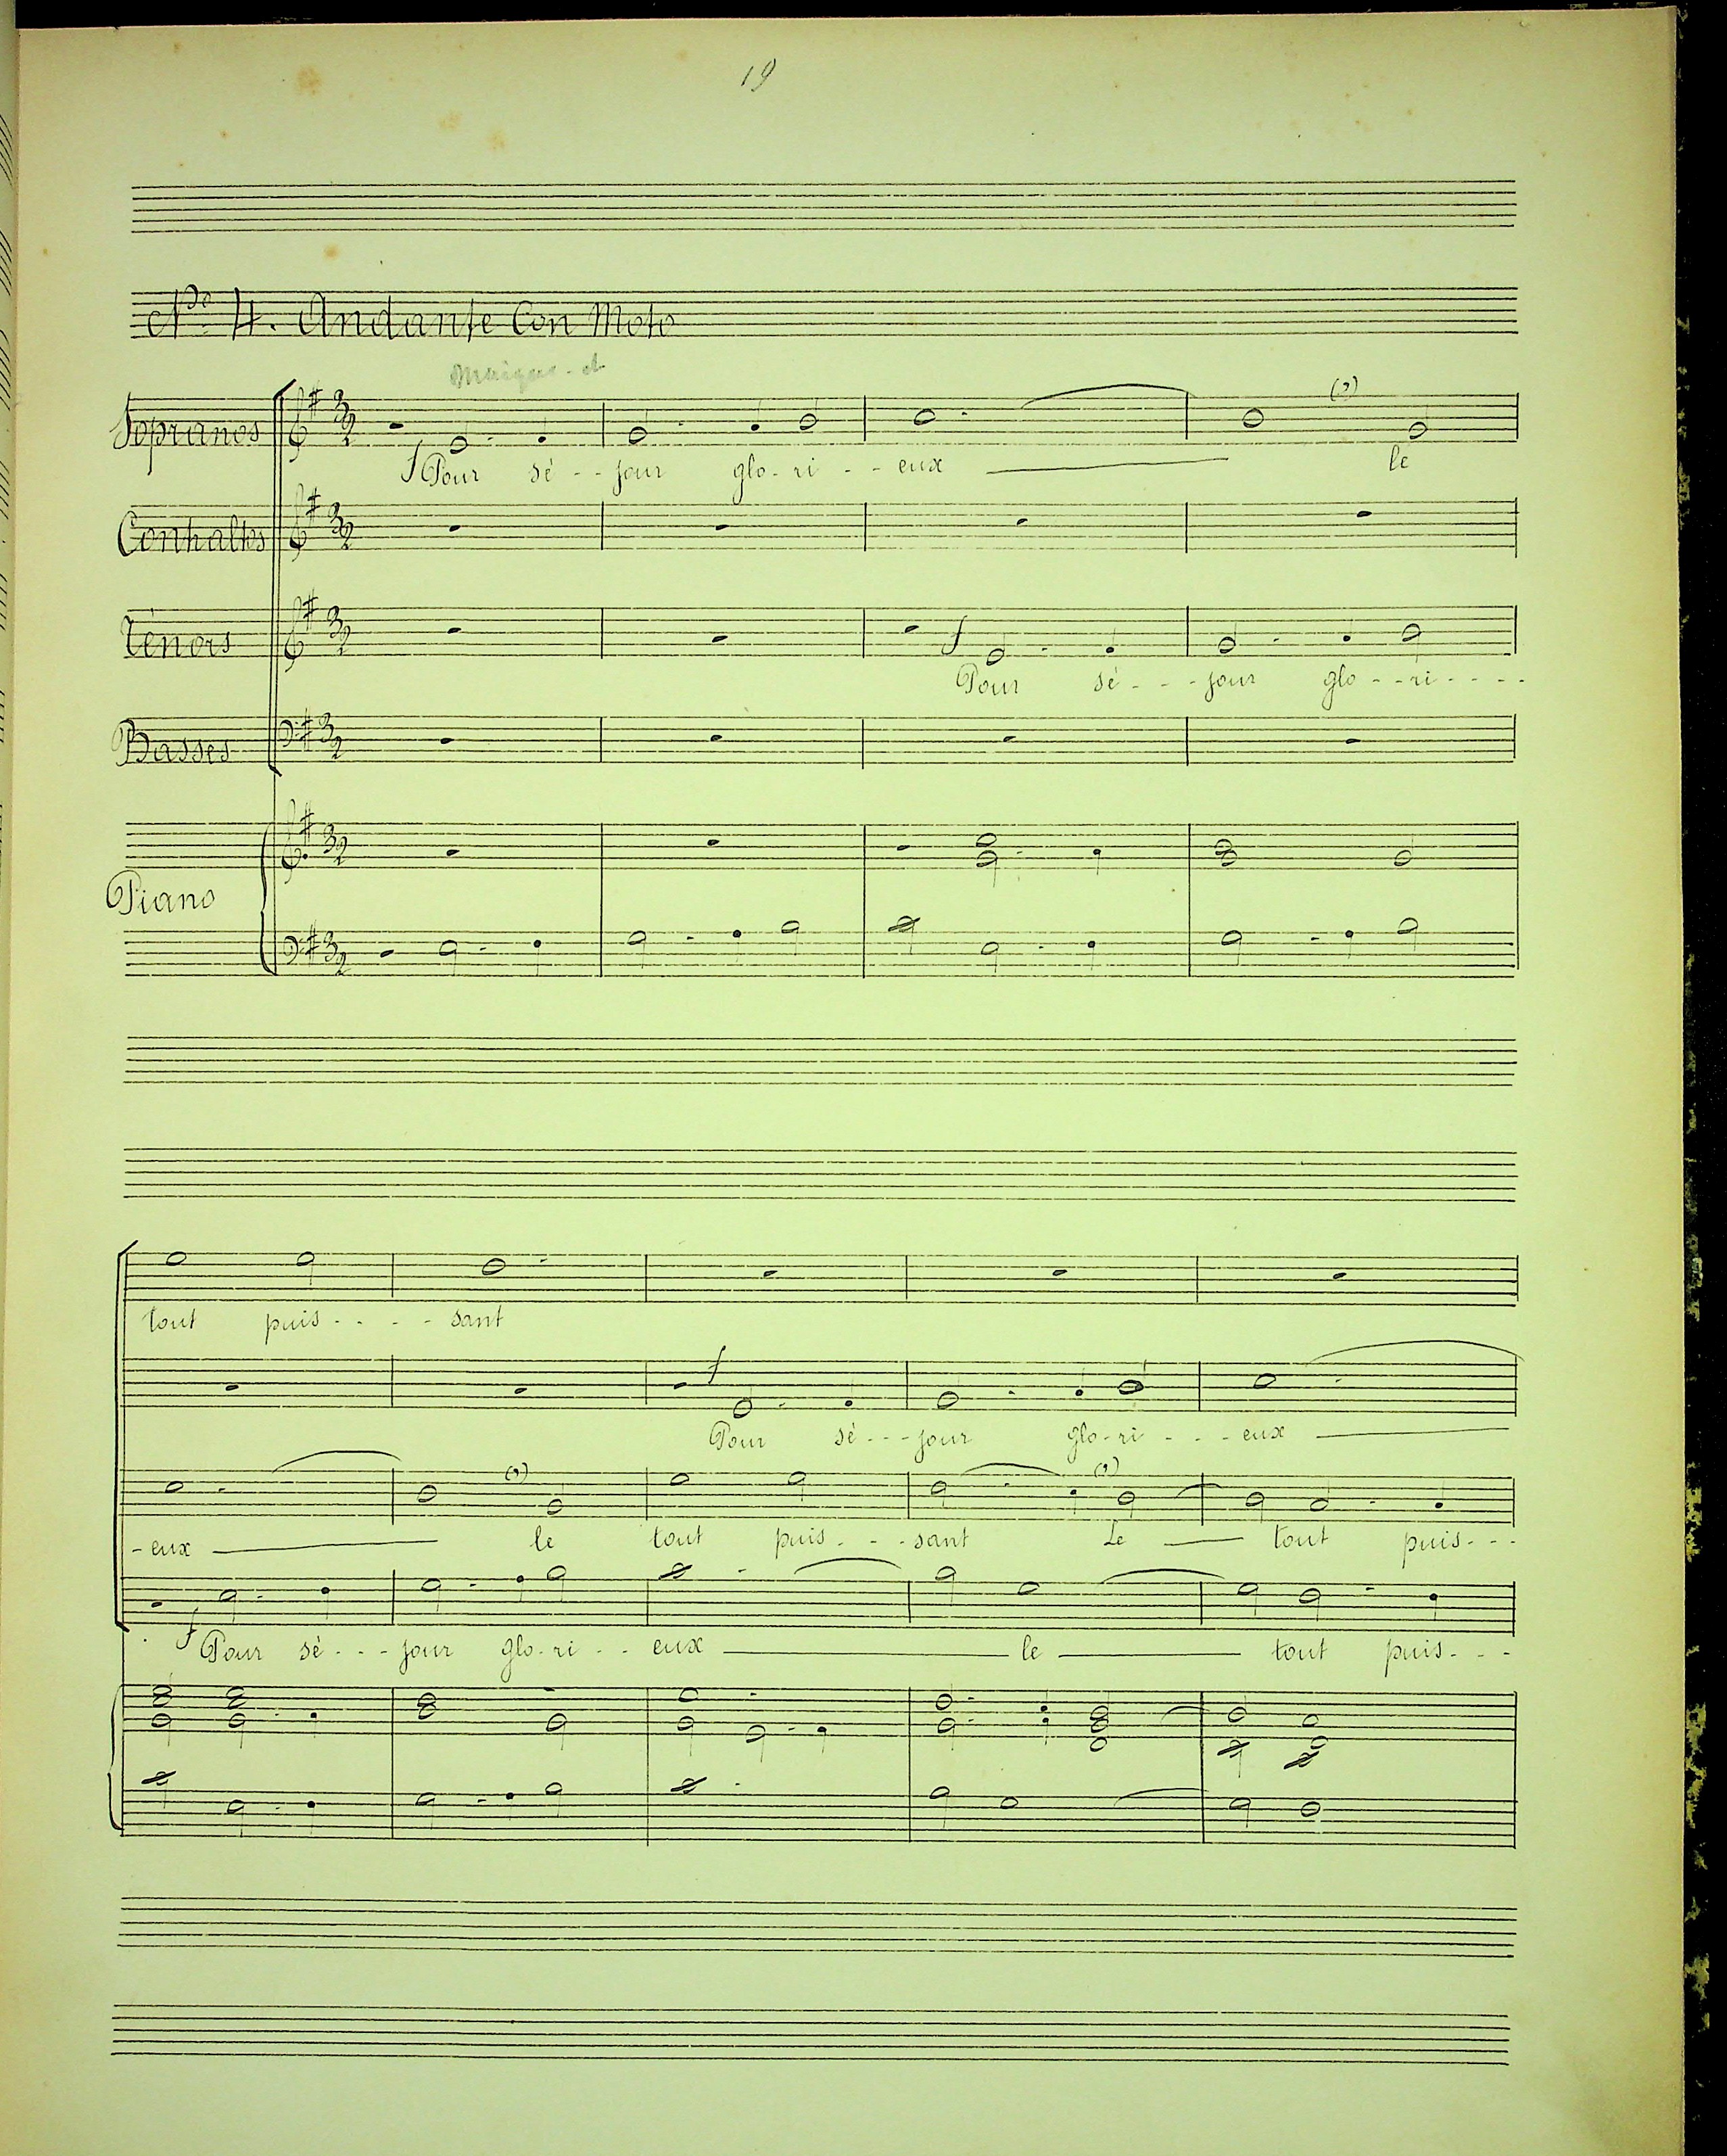 19
No 4. Andante Con Moto
Sopranos
f Pour sé - - jour glo - ri - - eux le
Contraltos
Ténors
f
Pour sé - - - jour glo - - ri - - - -
Basses
Piano
tout puis - - - - sant
f
Pour sé - - - jour glo - ri - - - eux
- eux le tout puis - - - sant Le tout puis - - -
f Pour sé - - - jour glo - ri - - eux le tout puis - - -